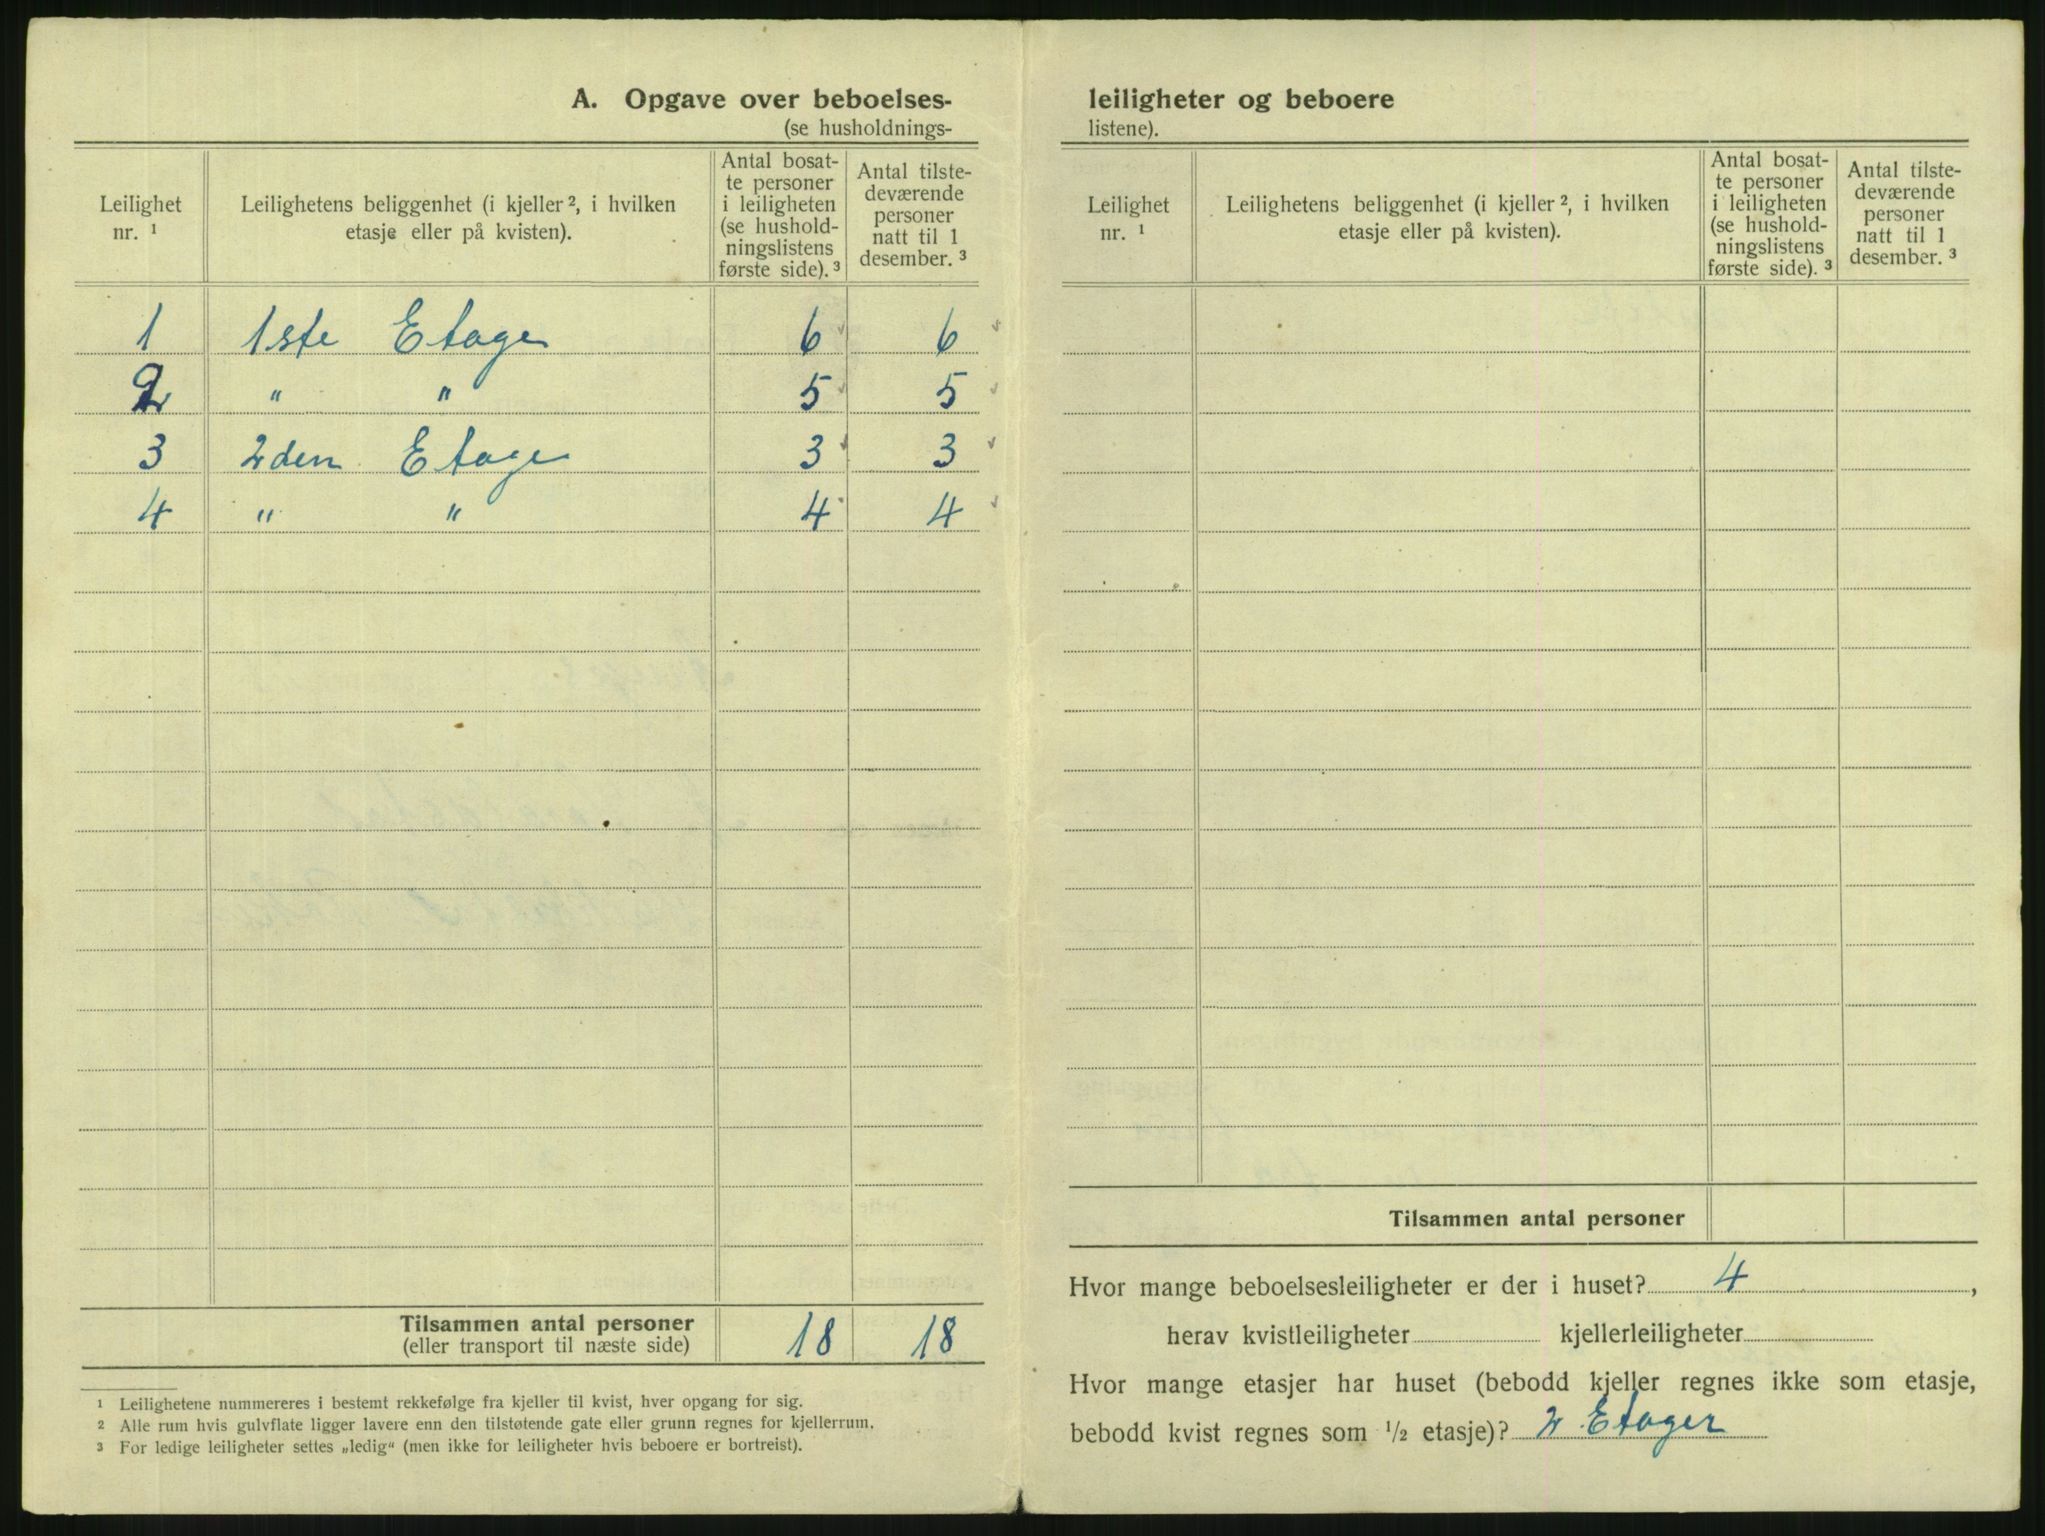 A. Opgave over beboelses-
(se husholdnings-
Leilighet
nr. ¹
Leilighetens beliggenhet (i kjeller ², i hvilken
etasje eller på kvisten).
Antal bosat-
te personer
i leiligheten
(se hushold-
ningslistens
første side). ³
Antal tilste-
deværende
personer
natt til 1
desember. ³
1 1ste Etage 6 6
2 " " 5 5
3 2den Etage 3 3
4 " " 4 4
Tilsammen antal personer
(eller transport til næste side) 18 18
¹ Leilighetene nummereres i bestemt rekkefølge fra kjeller til kvist, hver opgang for sig.
² Alle rum hvis gulvflate ligger lavere enn den tilstøtende gate eller grunn regnes for kjellerrum.
³ For ledige leiligheter settes „ledig“ (men ikke for leiligheter hvis beboere er bortreist).
leiligheter og beboere
listene).
Leilighet
nr. ¹
Leilighetens beliggenhet (i kjeller ², i hvilken
etasje eller på kvisten).
Antal bosat-
te personer
i leiligheten
(se hushold-
ningslistens
første side). ³
Antal tilste-
deværende
personer
natt til 1
desember. ³
Tilsammen antal personer
Hvor mange beboelsesleiligheter er der i huset? 4 ,
herav kvistleiligheter kjellerleiligheter
Hvor mange etasjer har huset (bebodd kjeller regnes ikke som etasje,
bebodd kvist regnes som ½ etasje)? 2 Etager